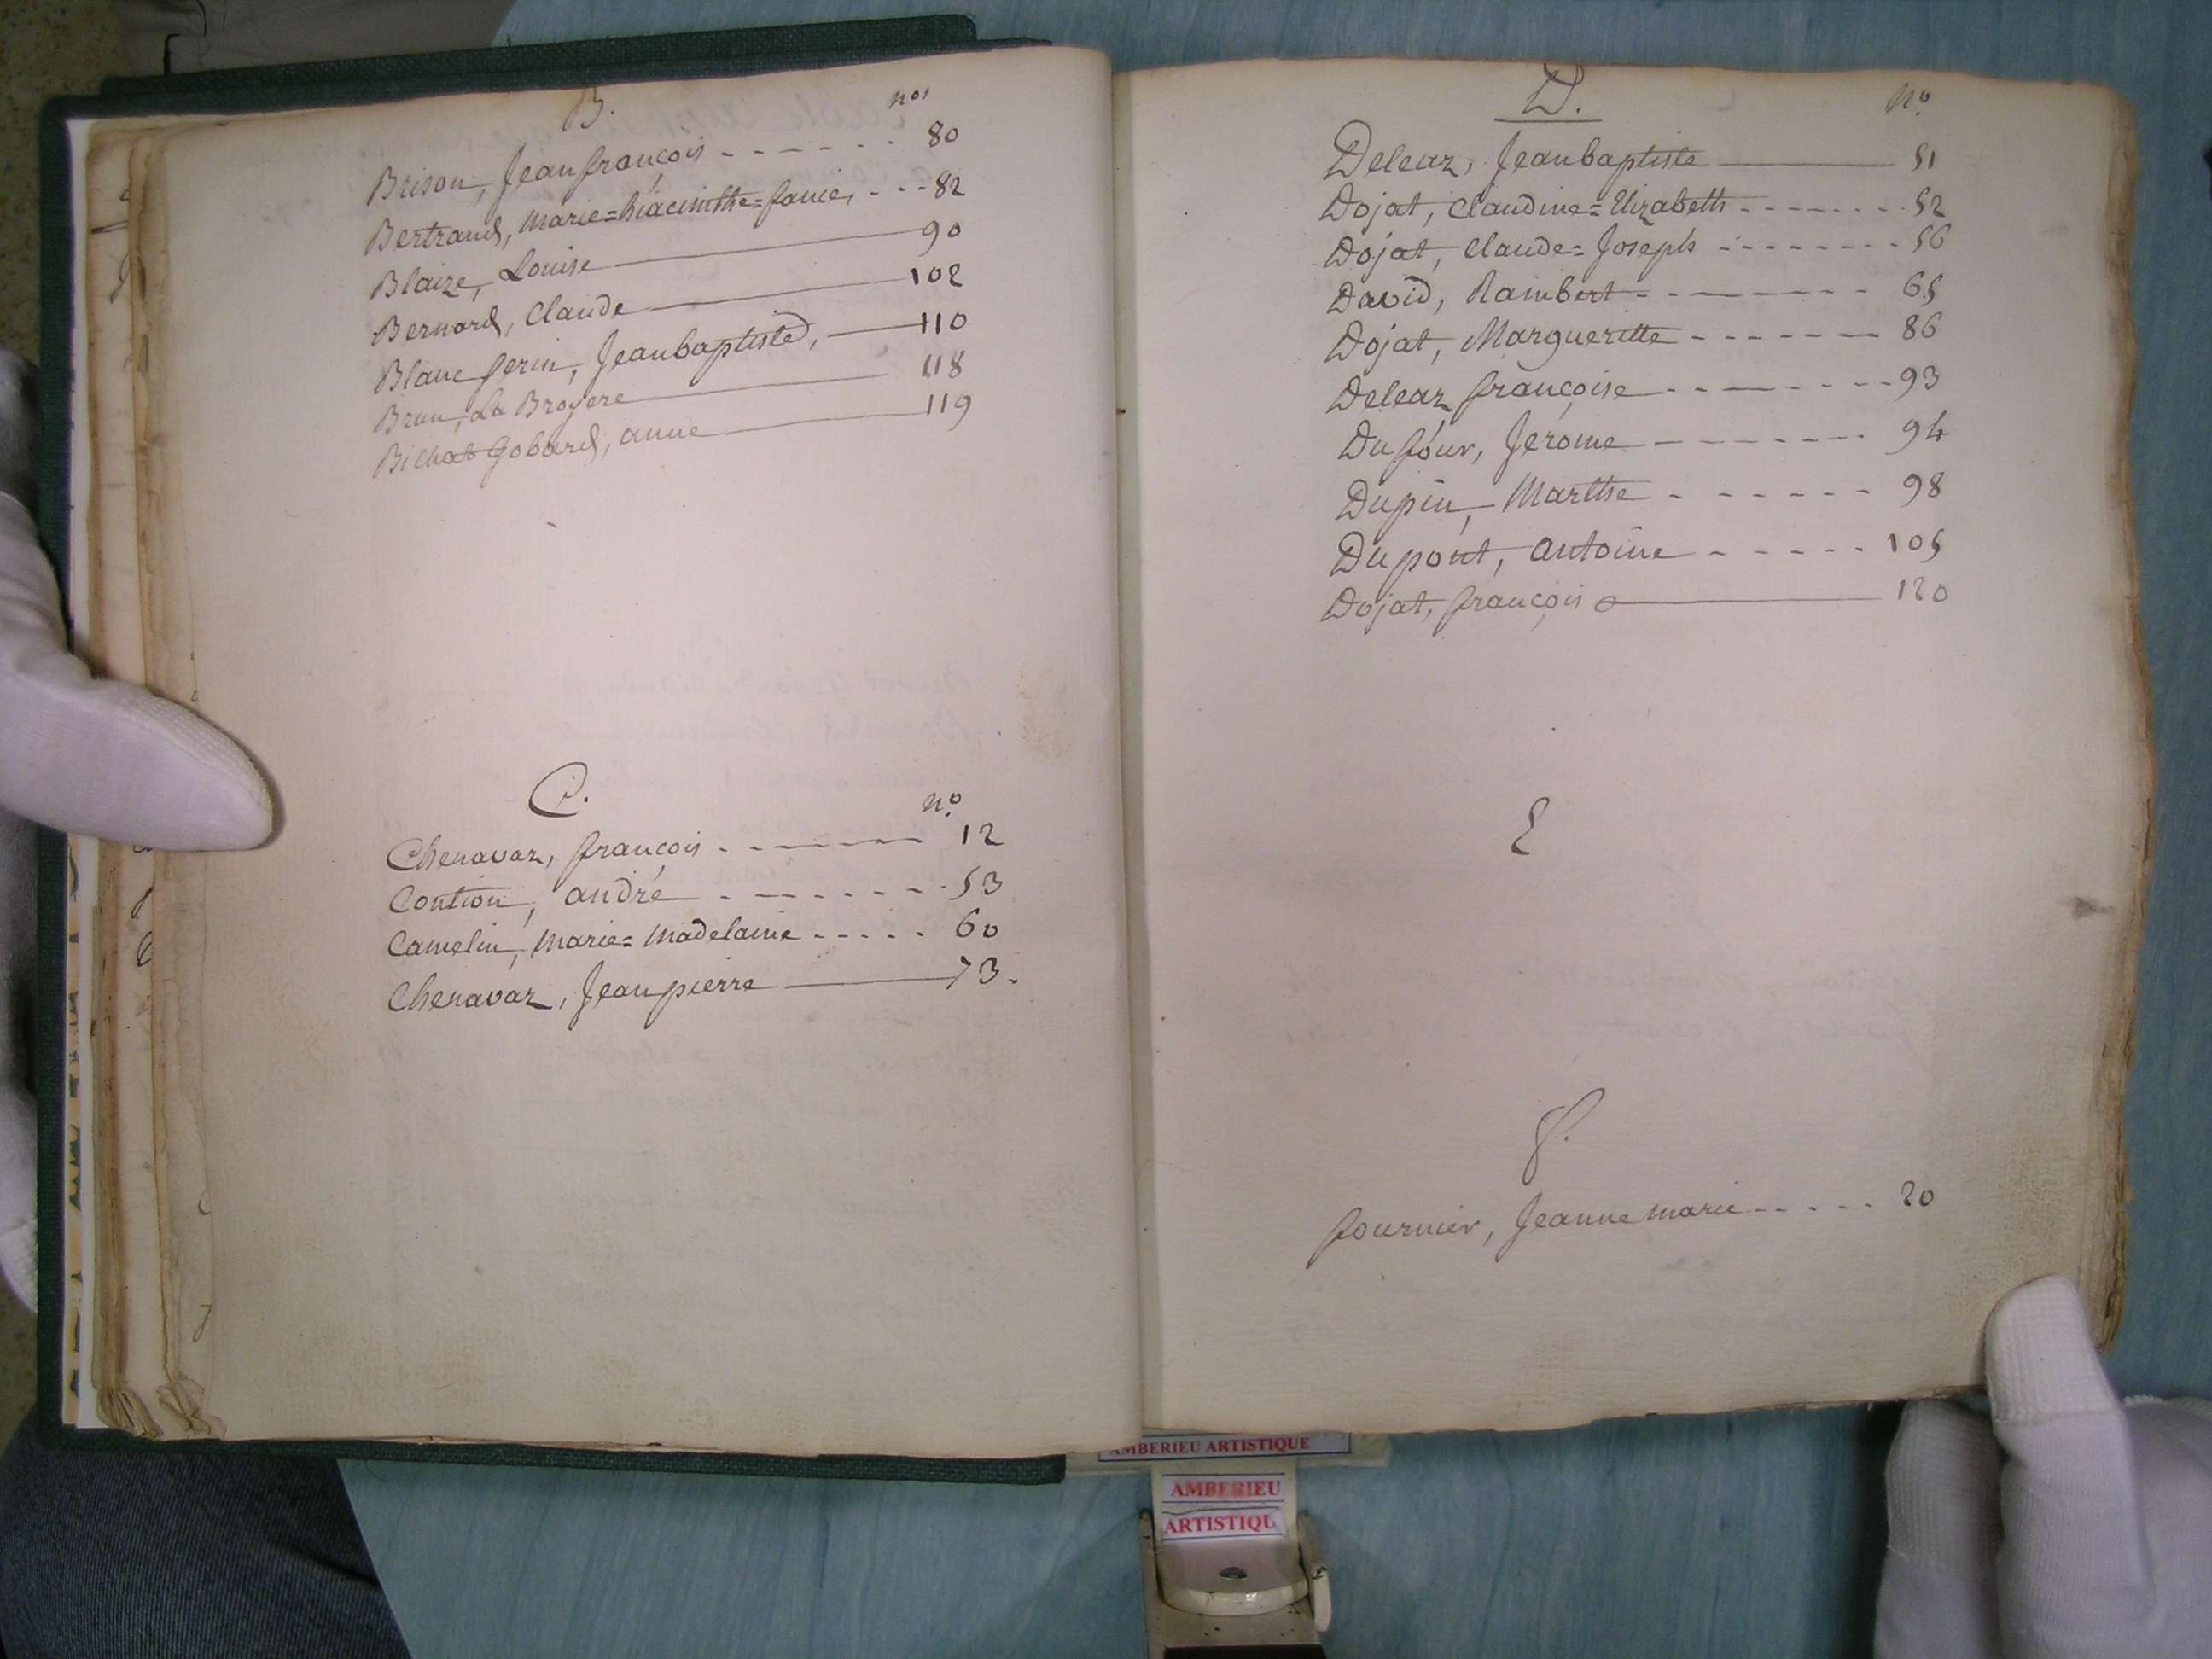 B. nos
Brison, Jean françois - - - - - - 80
Bertrand, marie=hiacinthe=fanie, - - - 82
Blaize, Louise 90
Bernard, Claude 102
Blanc ferin, Jean baptiste, 110
Brun, La Broyere 118
Bichat Gobard, anne 119
C. n.o
Chenavaz, françois 12
Contion, andré 53
Camelin, marie=madelaine - - - - - 60
Chenavaz, Jean pierre 73.
D. no
Deleaz, Jean baptiste 51
Dojat, Claudine=Elizabeth - - - - - - - 52
Dojat, Claude=Joseph - - - - - - - - 56
David, Rambert 65
Dojat, Margueritte - - - - - - - 86
Deleaz françoise - - - - - - - - 93
Dufour, Jerome - - - - - - - - 94
Dupin, Marthe - - - - - - - 98
Dupont, antoine - - - - - 105
Dojat, françois 120
E
f.
fournier, Jeanne marie - - - - - 20
AMBERIEU ARTISTIQUE
AMBERIEU
ARTISTIQU